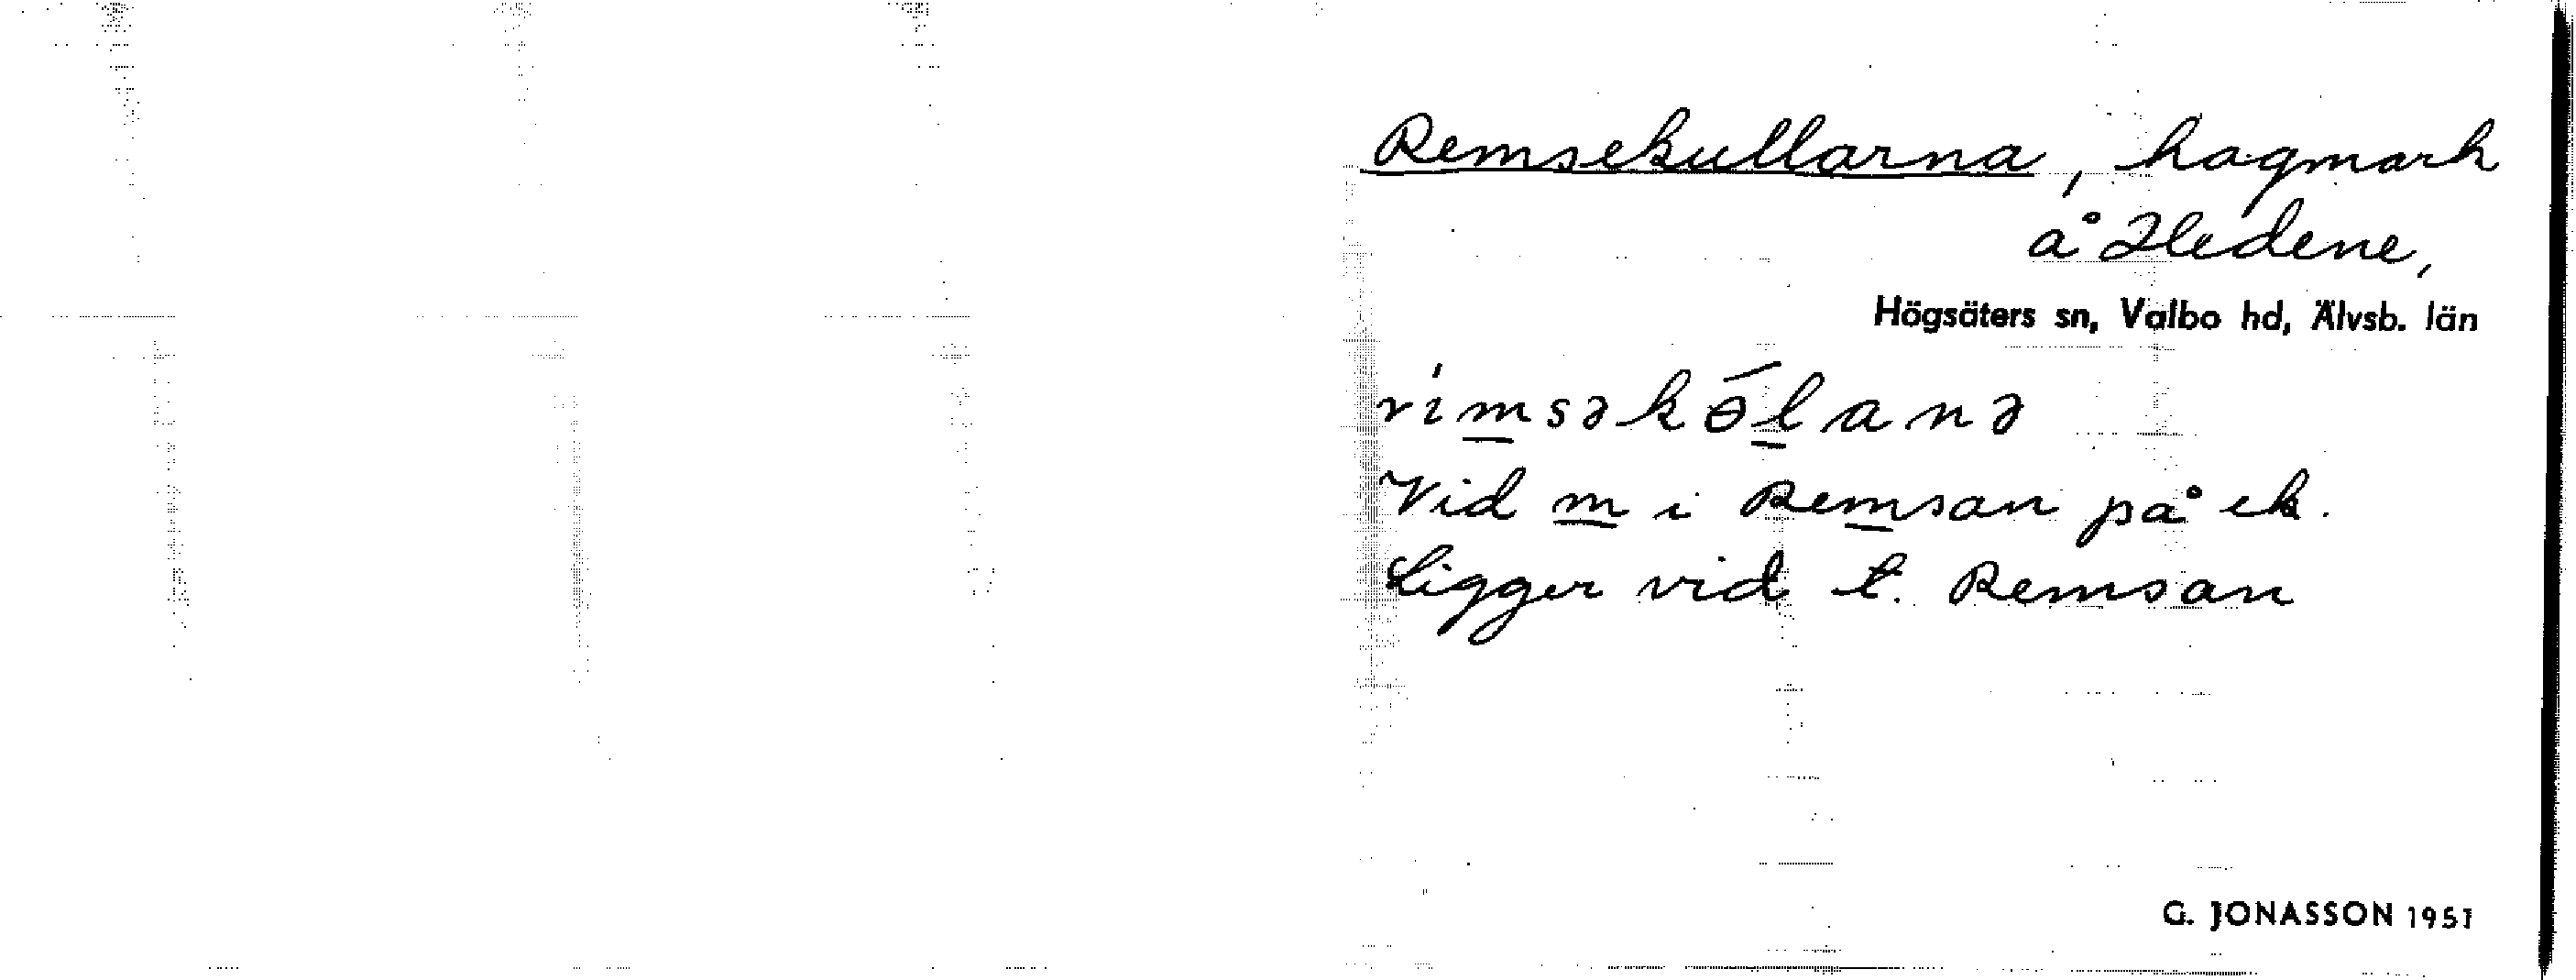 Remsekullarna, hagmark
å Hedene,
Högsäters sn, Valbo hd, Älvsb. län
rìmsəkɵ́lanə
Vid m i Remsan på ek.
Ligger vid t. Remsan
G. JONASSON 1951